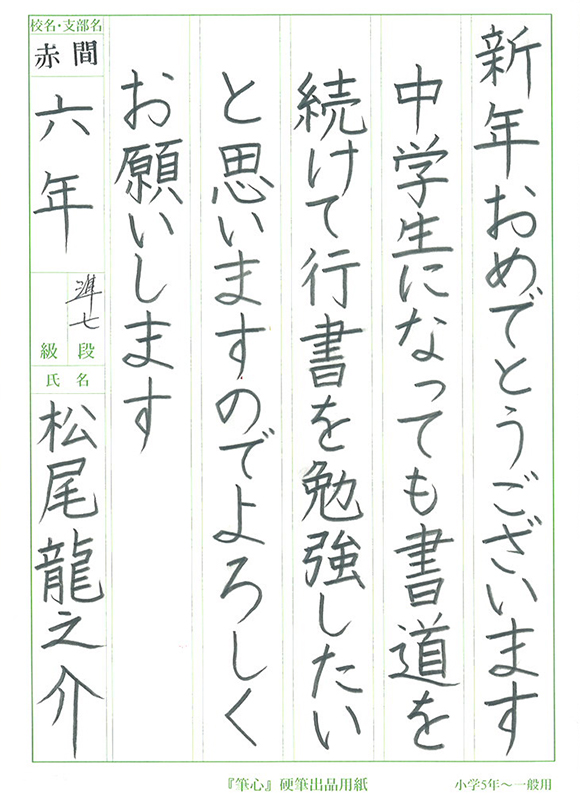 新年おめでとうございます
中学生になっても書道を
続けて行書を勉強したい
と思いますのでよろしく
お願いします
校名・支部名
赤間
六年
準七
段級
氏名
松尾龍之介
『筆心』硬筆出品用紙
小学5年～一般用